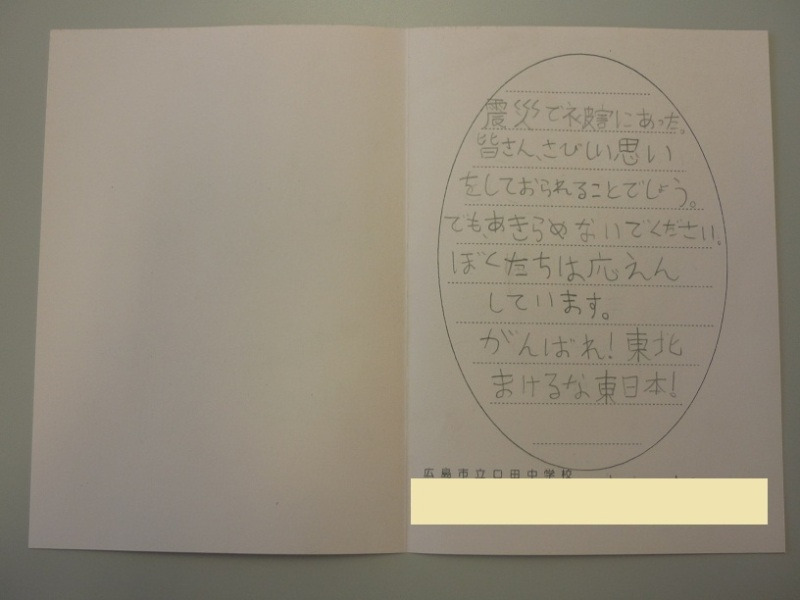 震災で被害にあった。
皆さん、さびしい思い
をしておられることでしょう。
でも、あきらめないでください。
ぼくたちは応えん
しています。
がんばれ！東北
まけるな東日本！
広島市立口田中学校